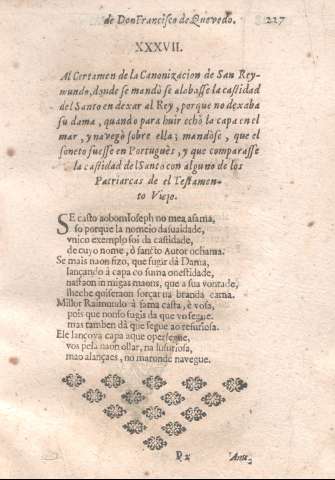 de Don Francisco de Quevedo. 227
XXXVII.
Al Certamen de la Canonizacion de San Rey-
mundo, donde se mandó se alabasse la castidad
del Santo en dexar al Rey, porque no dexaba
su dama, quando para huir echò la capa en el
mar, y navegò sobre ella; mandòse, que el
soneto fuesse en Portuguès, y que comparasse
la castidad del Santo con alguno de los
Patriarcas de el Testamen-
to Viejo.
SE casto ao bom Ioseph no mea a fama,
so porque la
vnico exemplo foi da castidade,
de cuyo nome, ò sancto Autor ochama.
Se mais naon fizo, que fugir dà Dama,
lançando à capa co suma onestidade,
nastaon in migas maons, que a sua vontade,
sheche quiseraon forçar na branda cama.
Millor Raimundo à fama casta, è vosa,
pois que non so fugis da que vo segue.
mas tamben dà que segue ao resuriosa.
Ele lançova capa aque opersegue,
vos pela naon ollar, na lusuriosa,
mao alançaes, no mar onde navegue.
Ant